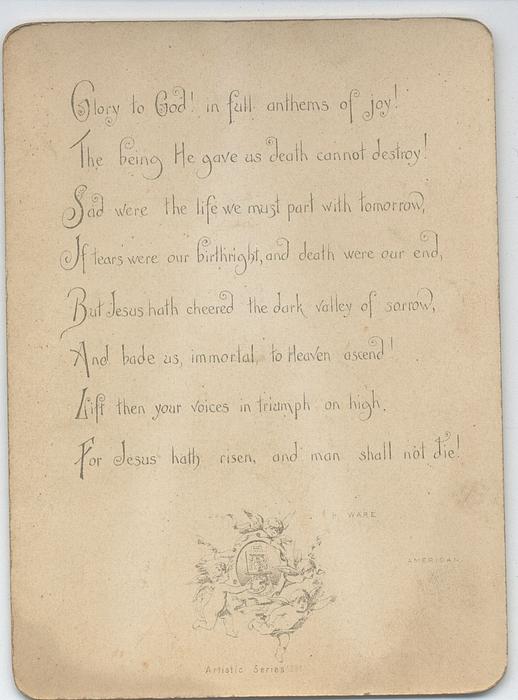 Glory to God! in full anthems of joy!
The being He gave us death cannot destroy!
Sad were the life we must part with tomorrow,
If tears were our birthright, and death were our end,
But Jesus hath cheered the dark valley of sorrow,
And bade us, immortal, to Heaven ascend!
Lift then your voices in triumph on high,
For Jesus hath risen, and man shall not die!
WARE
AMERICAN
Artistic Series